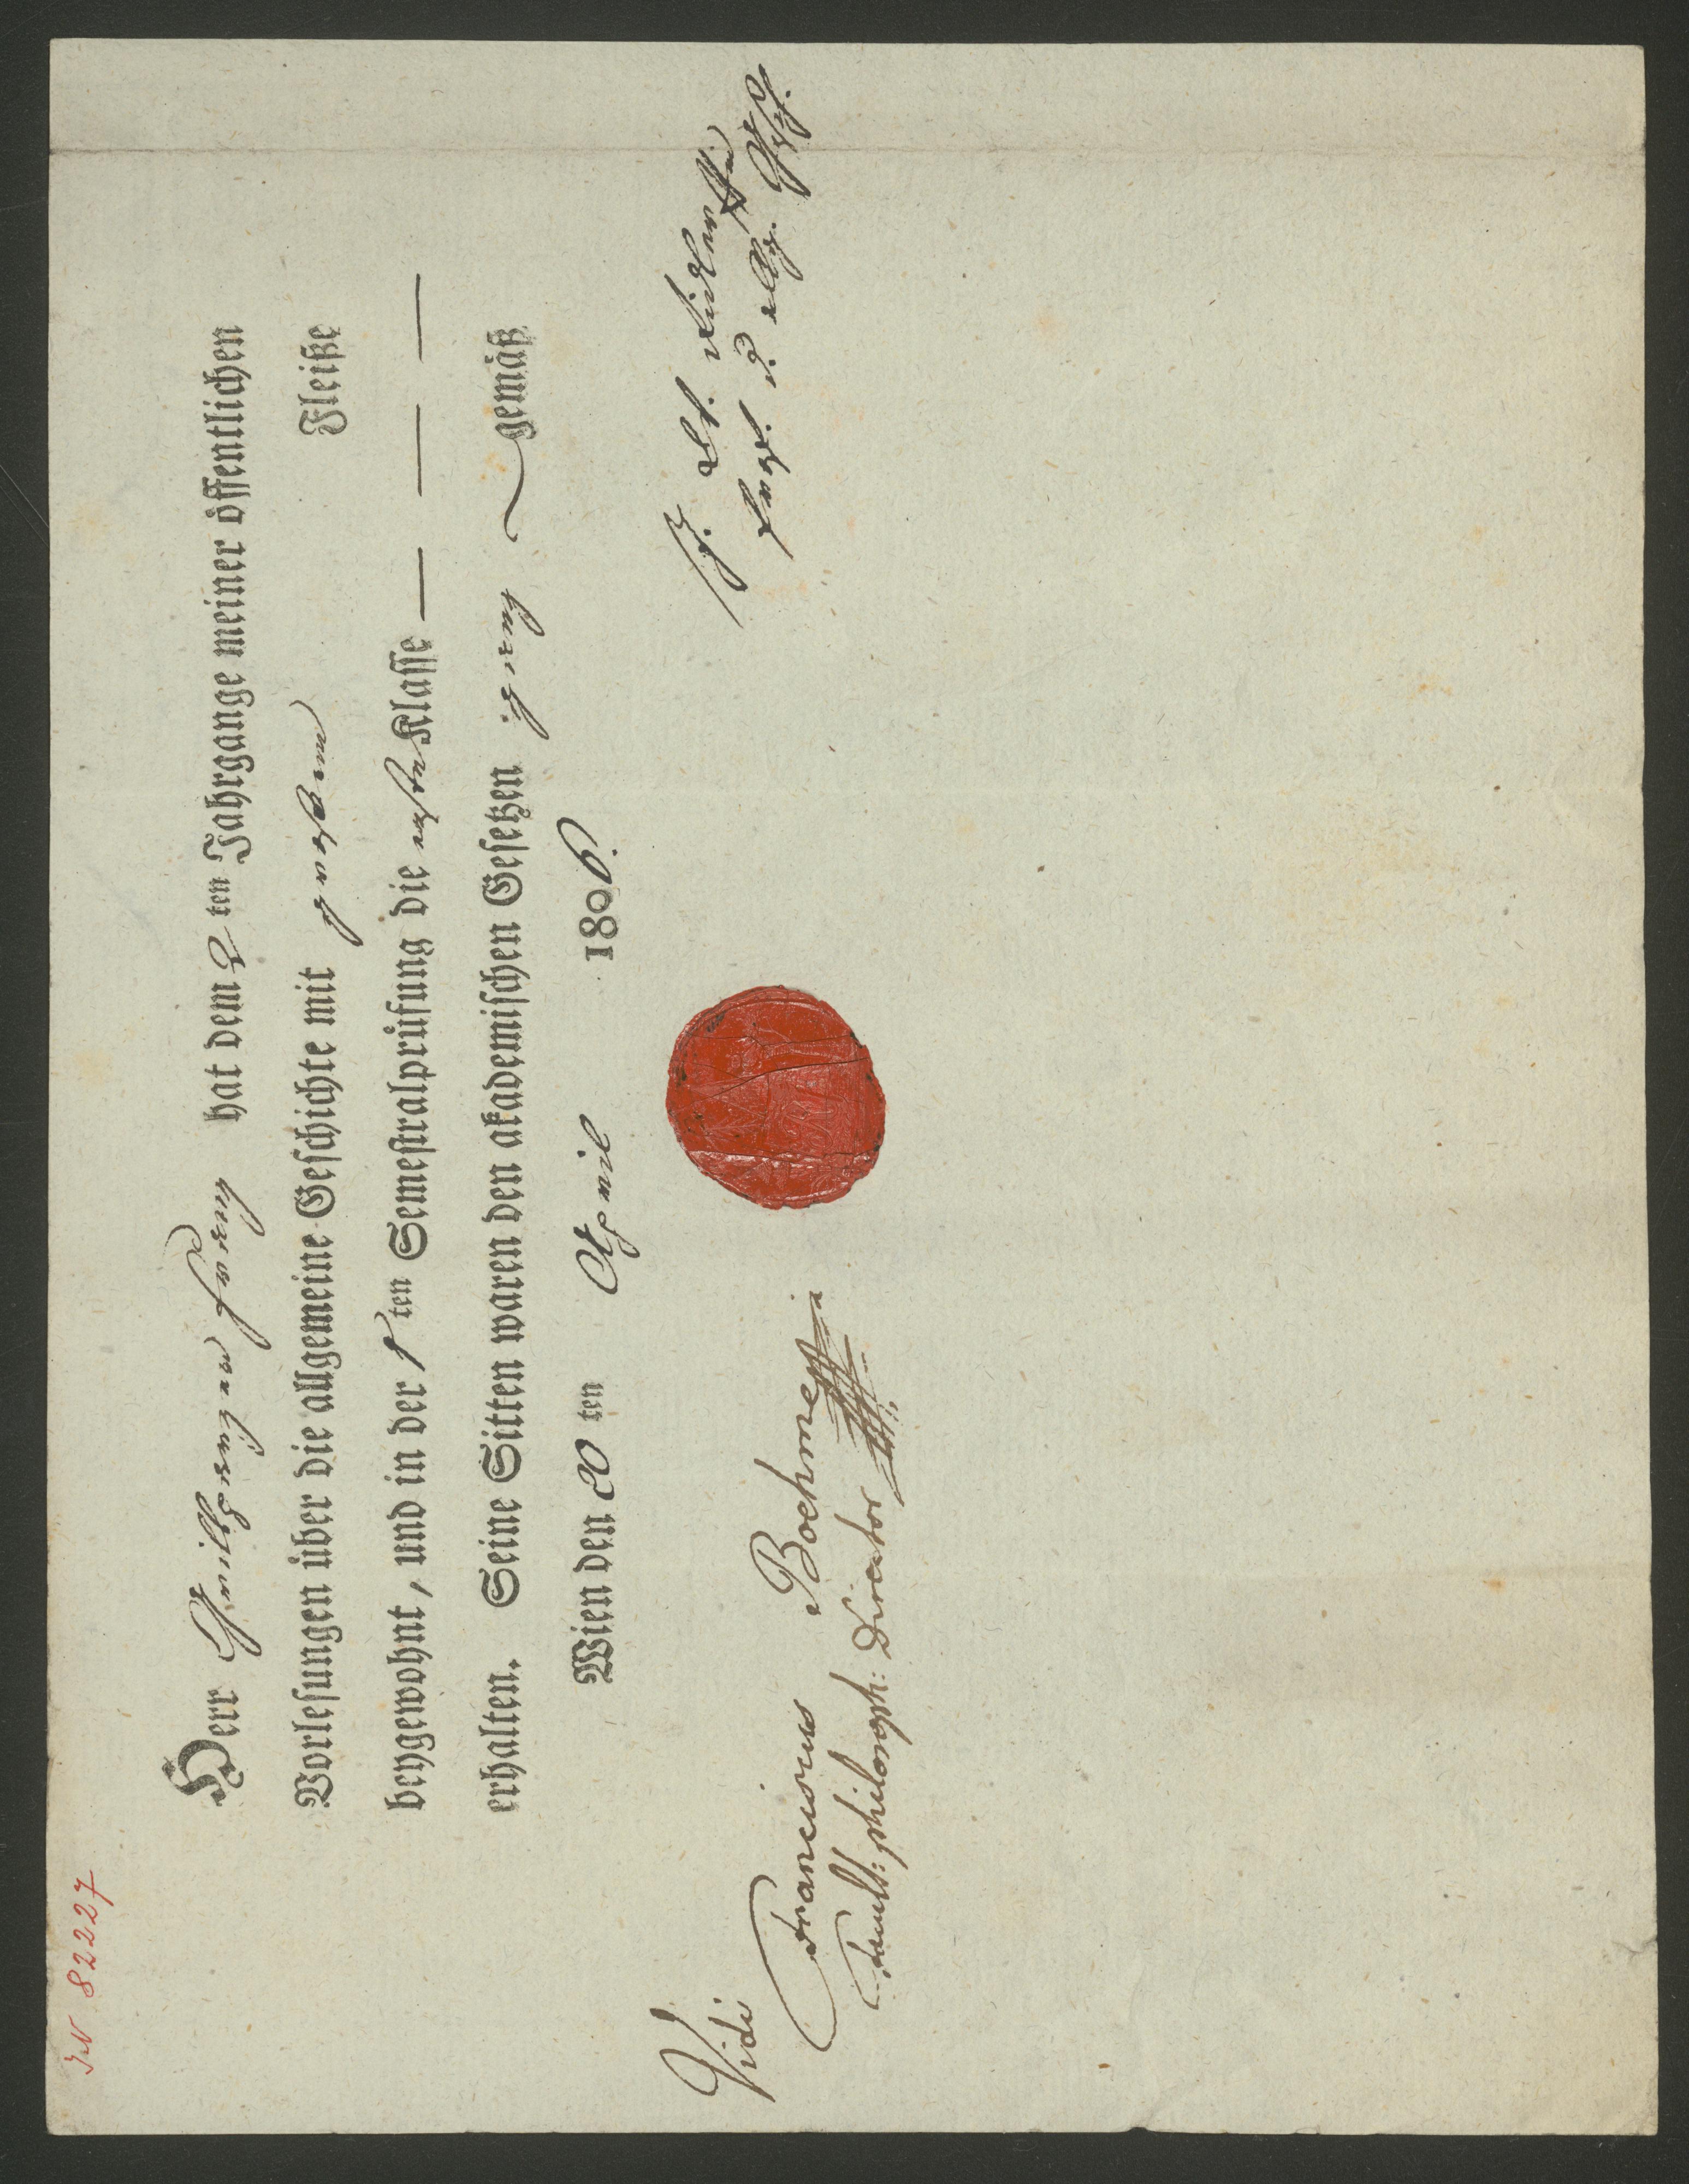 IN 82227
Herr Grillparzer Franz hat dem 2 ten Jahrgange meiner öffentlichen
Vorlesungen über die allgemeine Geschichte mit großem Fleiße
beygewohnt, und in der 1 ten Semestralprüfung die erste Klasse — — — —
erhalten. Seine Sitten waren den akademischen Gesetzen ganz gemäß
Wien den 20 ten April 1806
Vidi
Franciscus Boehme
Facult: philosoph: Director
Prof. d. allg.